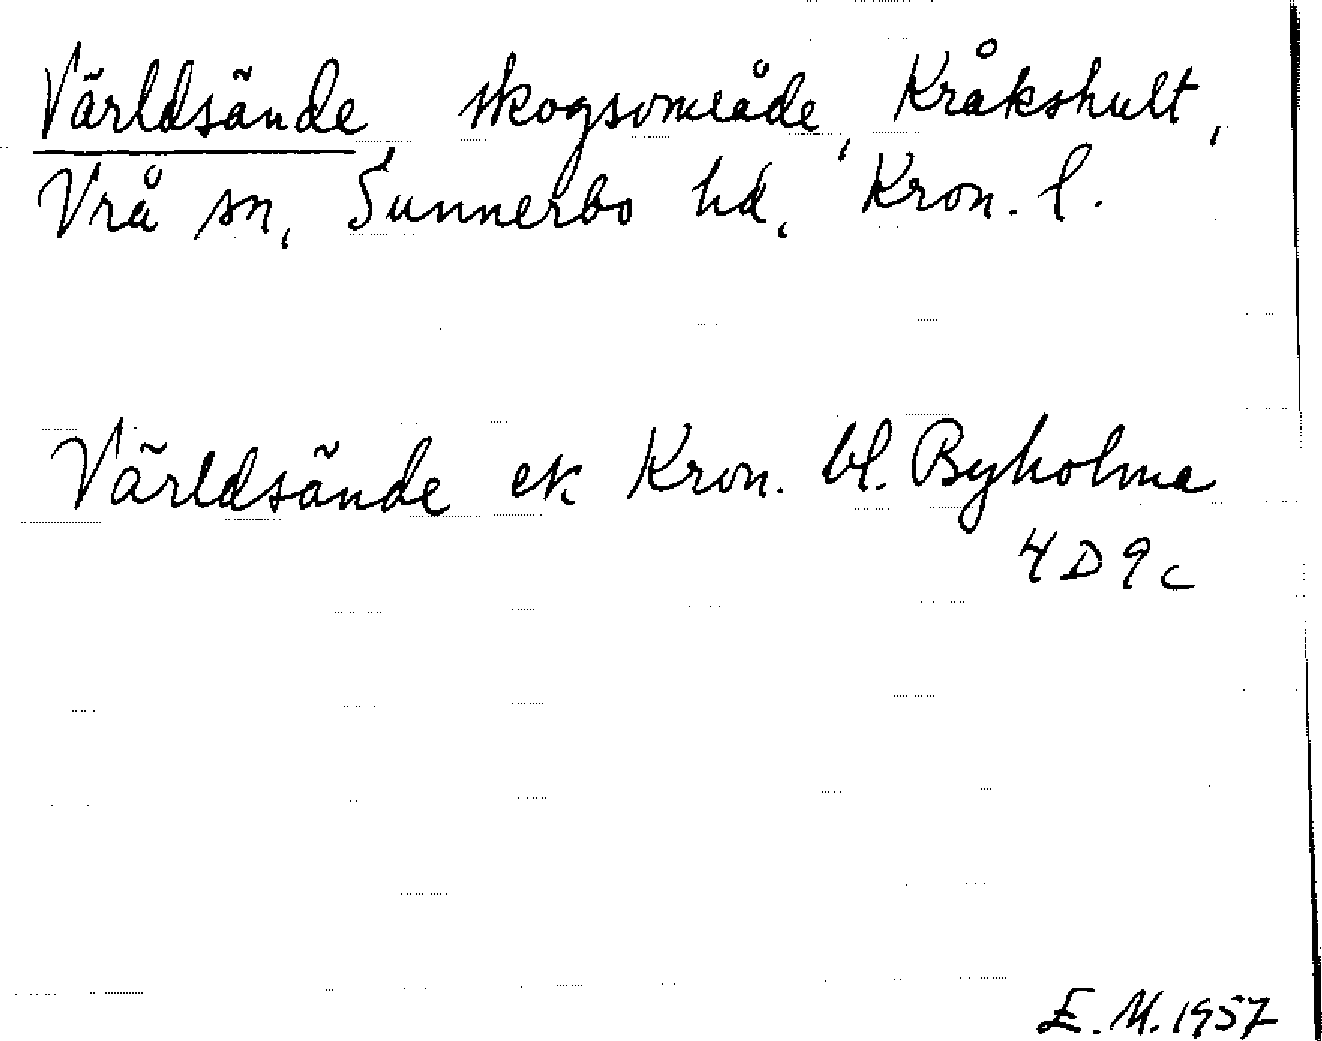 Världsände skogsområde, Kråkshult,
Vrå sn, Sunnerbo hd, Kron. l.
Världsände ek Kron. bl. Byholma
4D9c
E.M. 1957